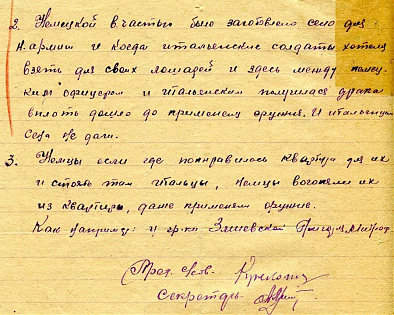 2. Немецкой в. частью было заготовлено сено для
н. армии и когда итальянские солдаты хотели
взять для своих лошадей и здесь между немец-
ким офицером и итальянским получилася драка
вплоть дошло до применению оружия. И итальянцам
сена не дали.
3. Немцы если где понравилось квартира для их
и стоять там итальцы, немцы вогоняли их
из квартиры, даже применяли оружие.
Как например: у гр-ки
Пред. с/сов.
Секретарь